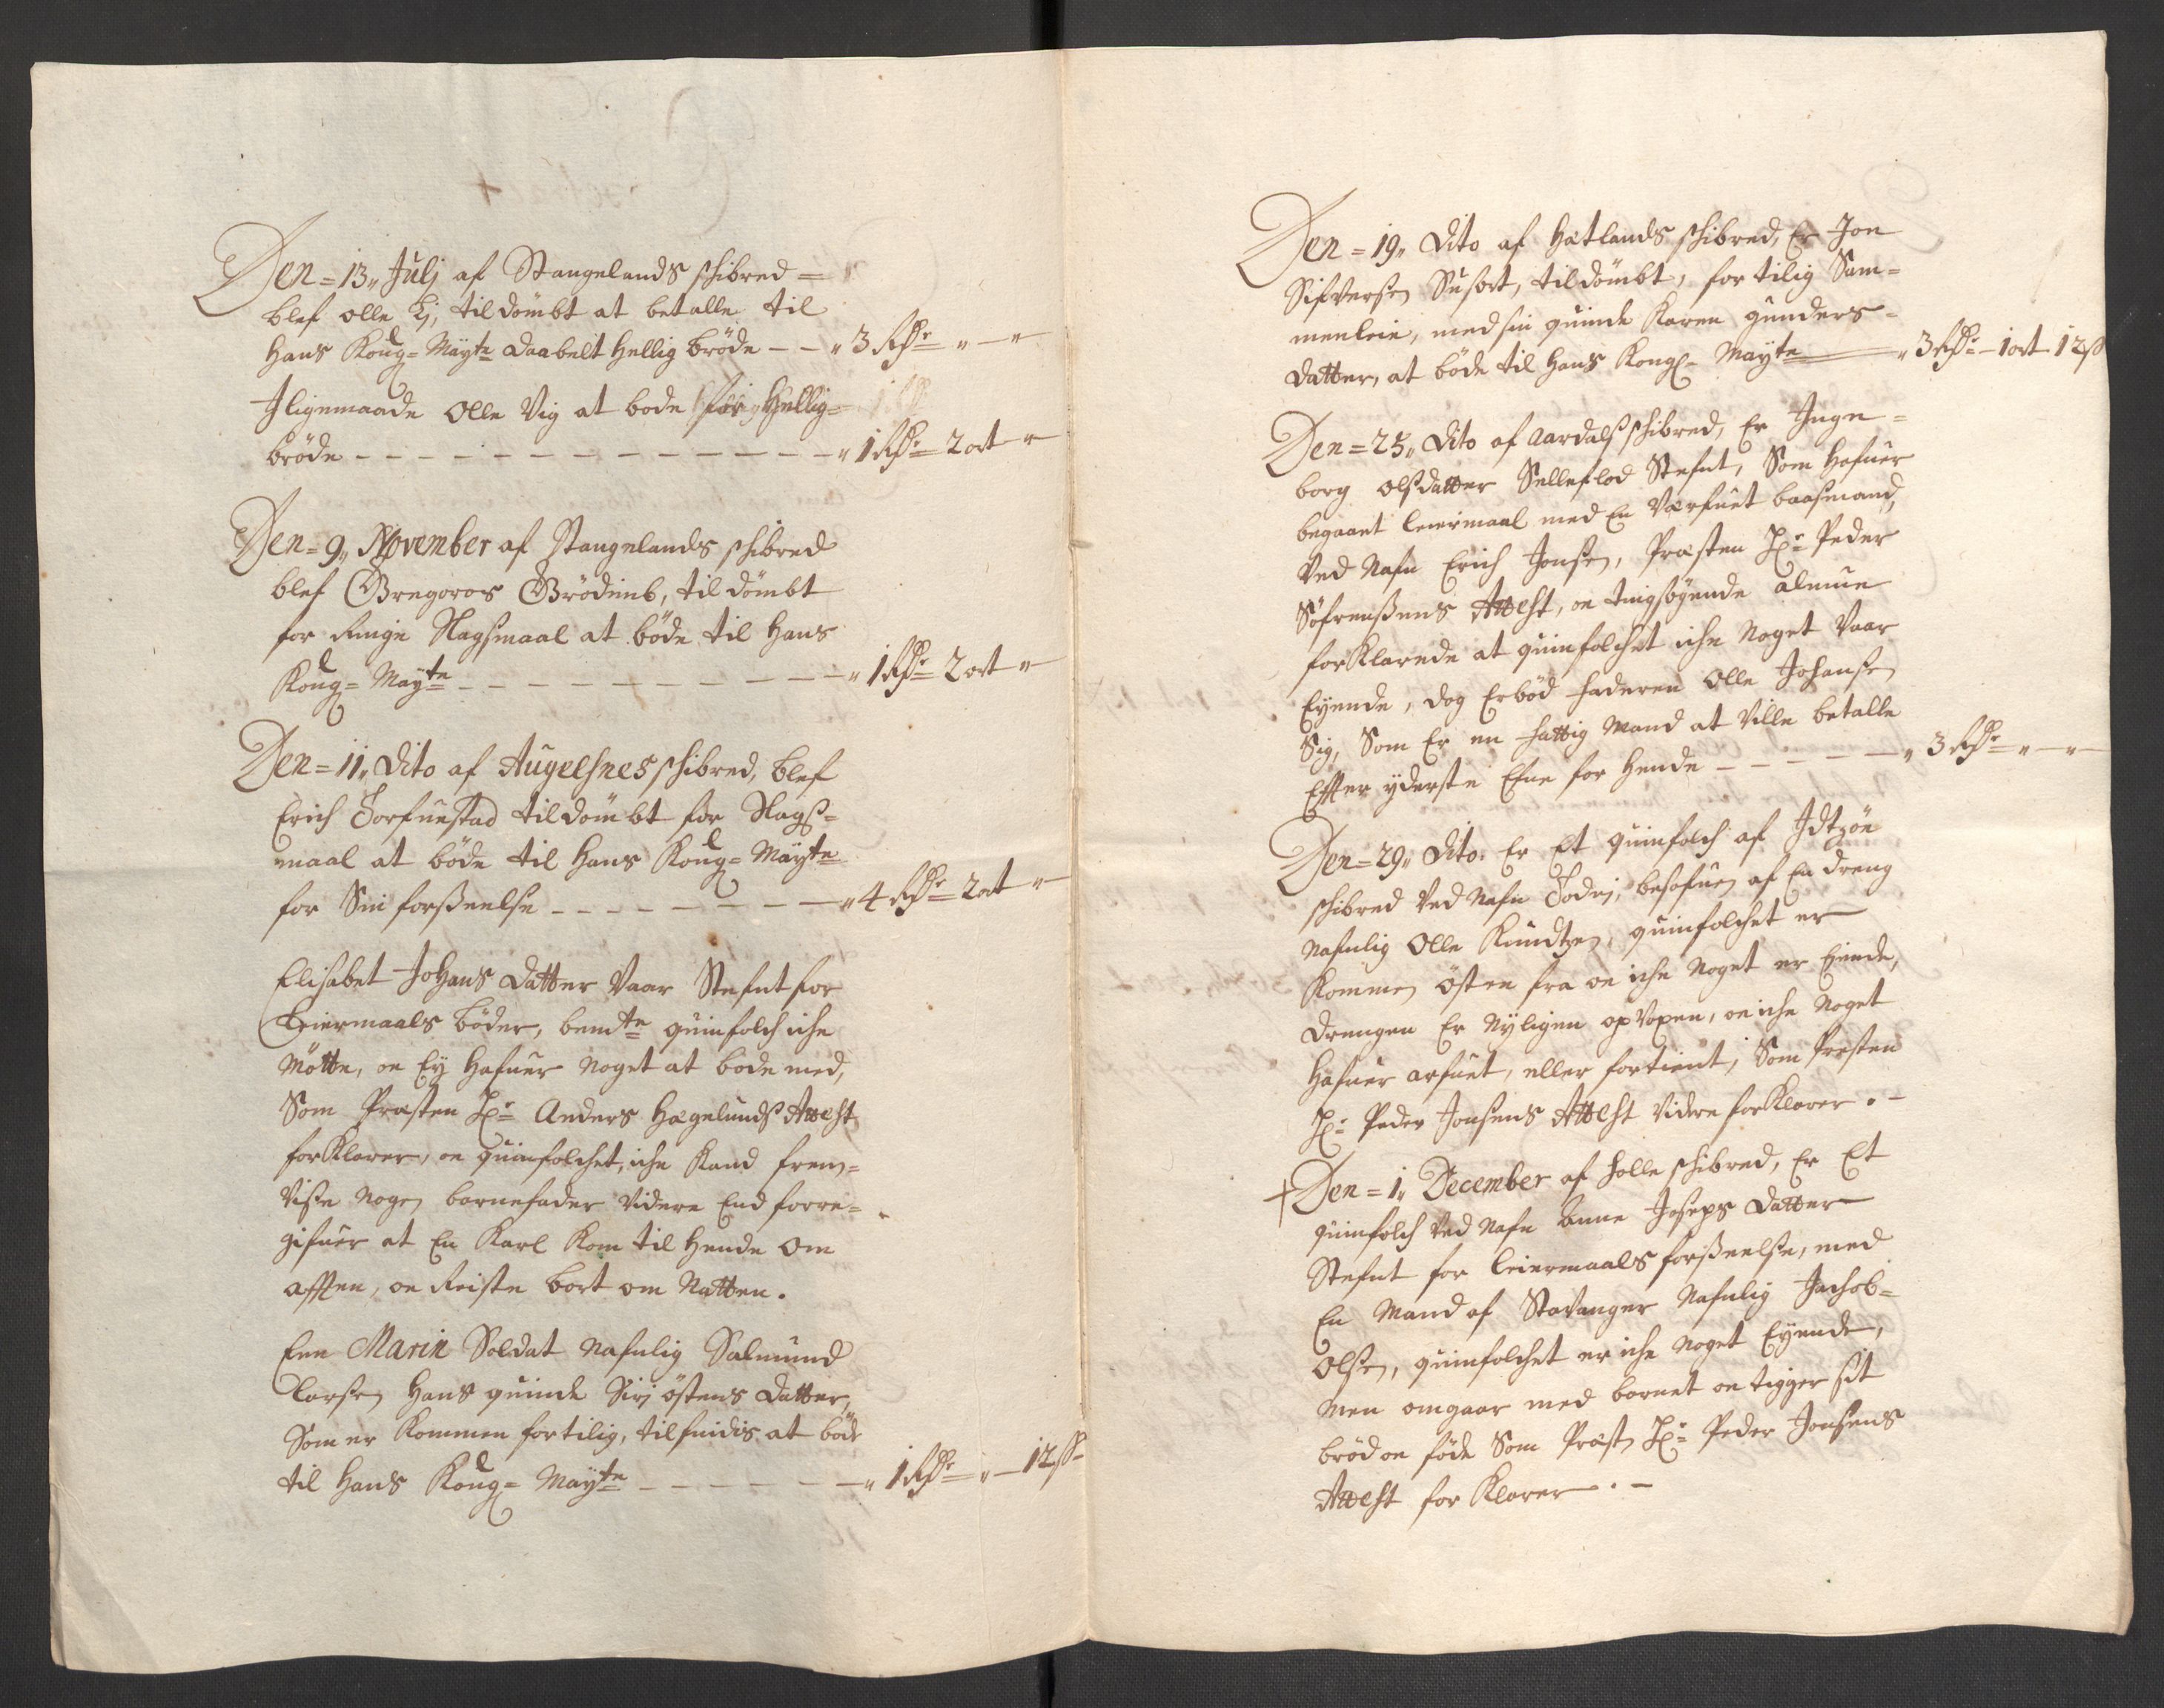 Den = 13„ Julj af Stangelands schibred =
blef olle Lj, tildömbt at betalle til
hans Kong= Mayte daabelt hellig bröde - - „ 3 Rdr „ — „
Iligemaade Olle Vig at bode for Hellig=
bröde - - - - - - - - - - „ 1 Rdr = 2 ort „
Den = 9„ November af Stangelands schibred
blef Gregoros Grödimb, tildömbt
for ringe Slagsmaal at böde til hans
Kong= Mayte - - - - - - - - „ 1 Rdr = 2 ort „
Den = 11„ Dito af Augelsnes schibred, blef
Erich Torfuestad tildömbt for Slags=
maal at böde til hans Kong= Mayte
for Sin forseelse - - - - - - - „ 4 Rdr = 2 ort „
Elisabet Johans datter Vaar Stefnt for
Leiermaals böder, bemte quinfolch iche
Mötte, oc Ey hafuer noget at bode med,
Som Præsten Hr= Anders Hægelunds Attest
forklarer, oc quinfolchet, iche kand frem=
Viisse nogen barnefader videre End forre=
gifuer at En Karl kom til hende om
afften, oc Reiste bort om Natten.
Een Marin Soldat nafnlig Salmund
Larsen hans quinde Sirj östens datter,
Som er kommen for tilig, tilfindis at böde
til hans Kong= Mayte - - - - - - „ 1 Rdr = „ — 12 s
Den = 19„ Dito af Hatlands schibred, Er Jon
Sifversen Susort, tildömbt, for tilig Sam=
menleie, med sin quinde Karen gunders=
datter, at böde til hans Kongl= Mayte „ 3 Rdr = 1 ort 12 s
Den = 25„ Dito af Aardals schibred, Er Inge=
borg olsdatter Selleflod Stefnt, Som hafuer
begaaet leiermaal med En Værfuet baasmand,
Ved Nafn Erich Jonsen, Præsten Hr= Peder
Söfrensens Attest, oc tingsögende almue
forklarede at quinfolchet iche Noget Vaar
Eyende, dog Erböd faderen Olle Johansen
Sig, Som Er en fattig Mand at ville betalle
Effter yderste Efne for hende - - - - - „ 3 Rdr „ — „
Den = 29„ Dito. Er Et quinfolch af Idtzöe
schibred Ved Nafn Todrj, besofuen af En dreng
Nafnlig Olle Knudtzen, quinfolchet er
kommen östen fra oc iche Noget er Eiende,
drengen Er Nyligen opvoxen, oc iche Noget
hafuer arfuet, eller fortient, Som Presten
Hr= Peder Jonsens Attest videre forklarer. -
+ Den = 1„ December af Holle schibred, Er Et
quinfolch Ved Nafn Anne Joseps datter
Stefnt for Leiermaals forseelse, med
En Mand af Stavanger Nafnlig Jachob=
Olsen, quinfolchet er iche noget Eyende,
Men omgaar med barnet oc tigger sit
bröd oc föde Som Præsten Hr= Peder Jonsens
Attest for klarer. -